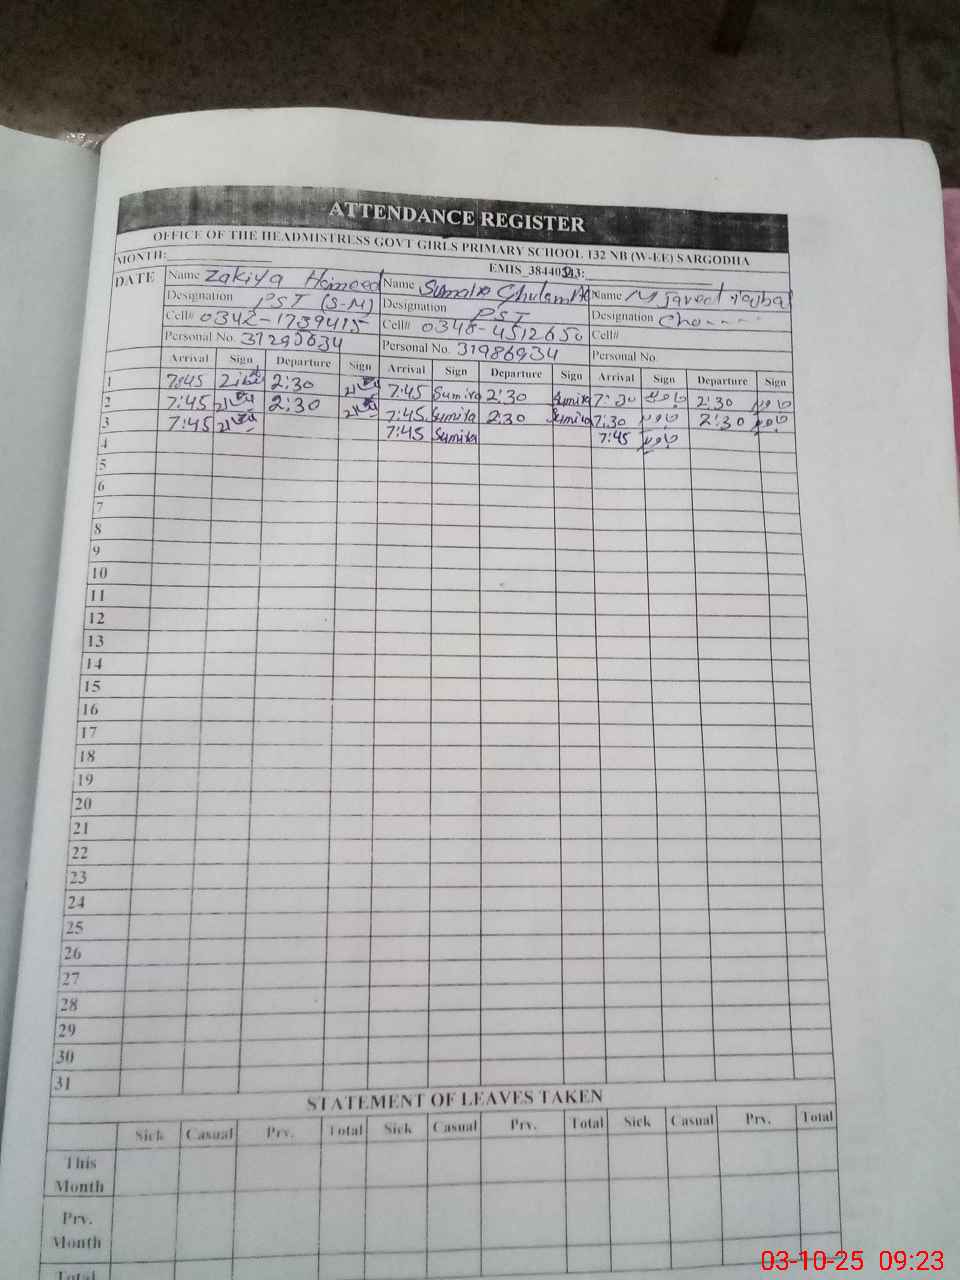 ATTENDANCE REGISTER
OFFICE OF THE HEADMISTRESS GOVT GIRLS PRIMARY SCHOOL 132 NB (W-EE) SARGODHA
MONTH: EMIS_3844021
DATE Name Zakiya Hameed Name Sumaira Ghulam Name M Javed Iqbal
Designation PST (S-M) Designation PST Designation
Cell# 0342-1739415 Cell# 0348-4512650 Cell#
Personal No. 31295634 Personal No. 31986934 Personal No.
Arrival Sign Departure Sign Arrival Sign Departure Sign Arrival Sign Departure Sign
1 7:45 2:30 7:45 Sumira 2:30 Sumira 7:30 جاوید 2:30 جاوید
2 7:45 2:30 7:45 Sumira 2:30 Sumira 7:30 جاوید 2:30 جاوید
3 7:45 7:45 Sumira 7:45 جاوید
4
5
6
7
8
9
10
11
12
13
14
15
16
17
18
19
20
21
22
23
24
25
26
27
28
29
30
31
STATEMENT OF LEAVES TAKEN
Sick Casual Prv. Total Sick Casual Prv. Total Sick Casual Prv. Total
This
Month
Prv.
Month
Total
03-10-25 09:23